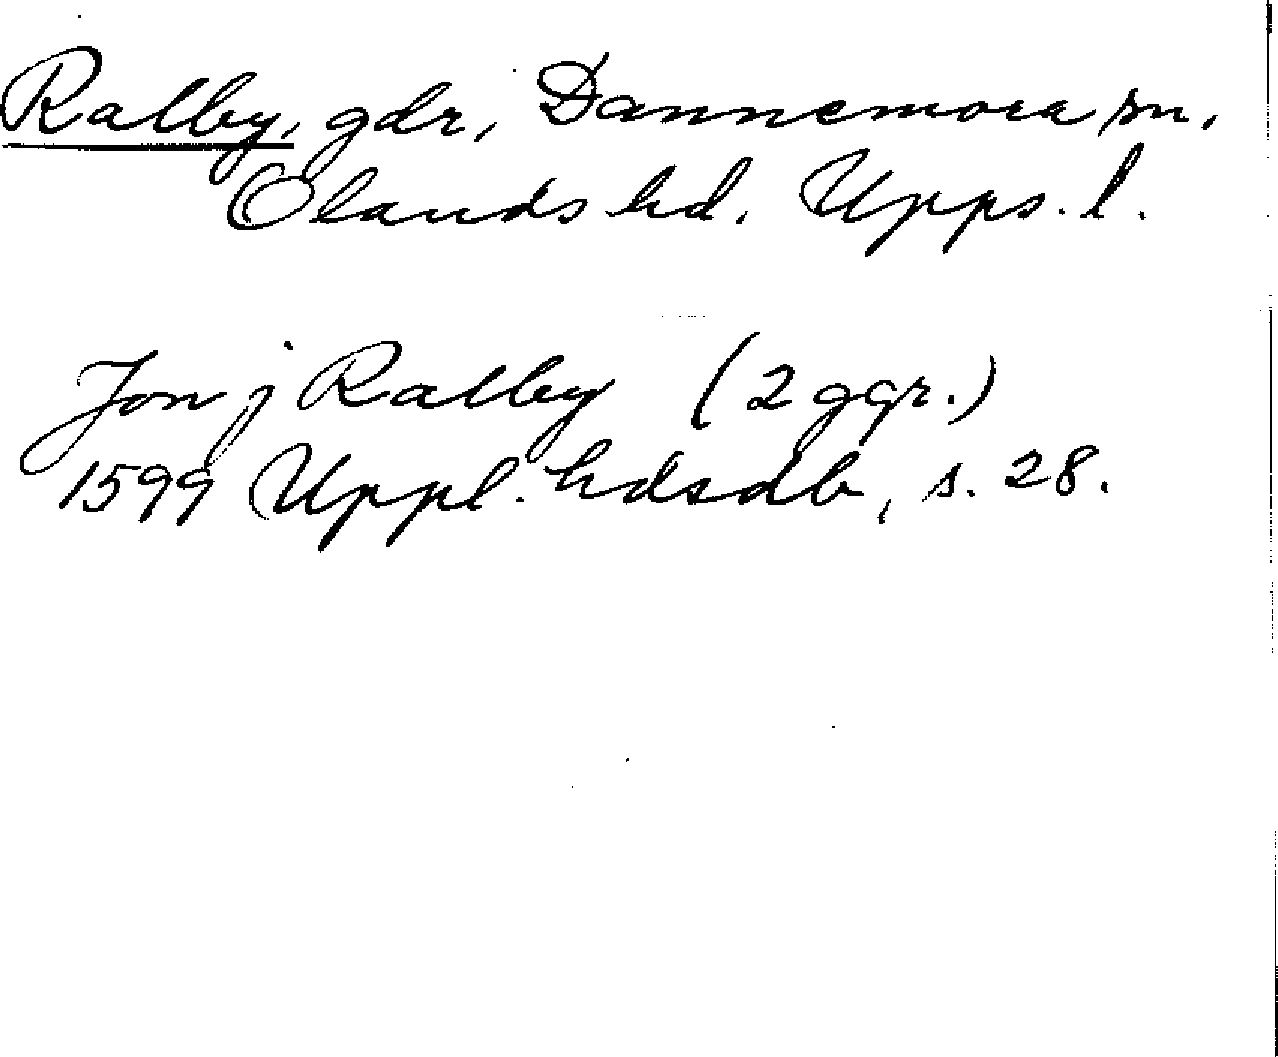 Ralby, gdr, Dannemora sn,
Olands hd. Upps. l.
Jon j Ralby (2 ggr.)
1599 Uppl. hdsdb, s. 28.